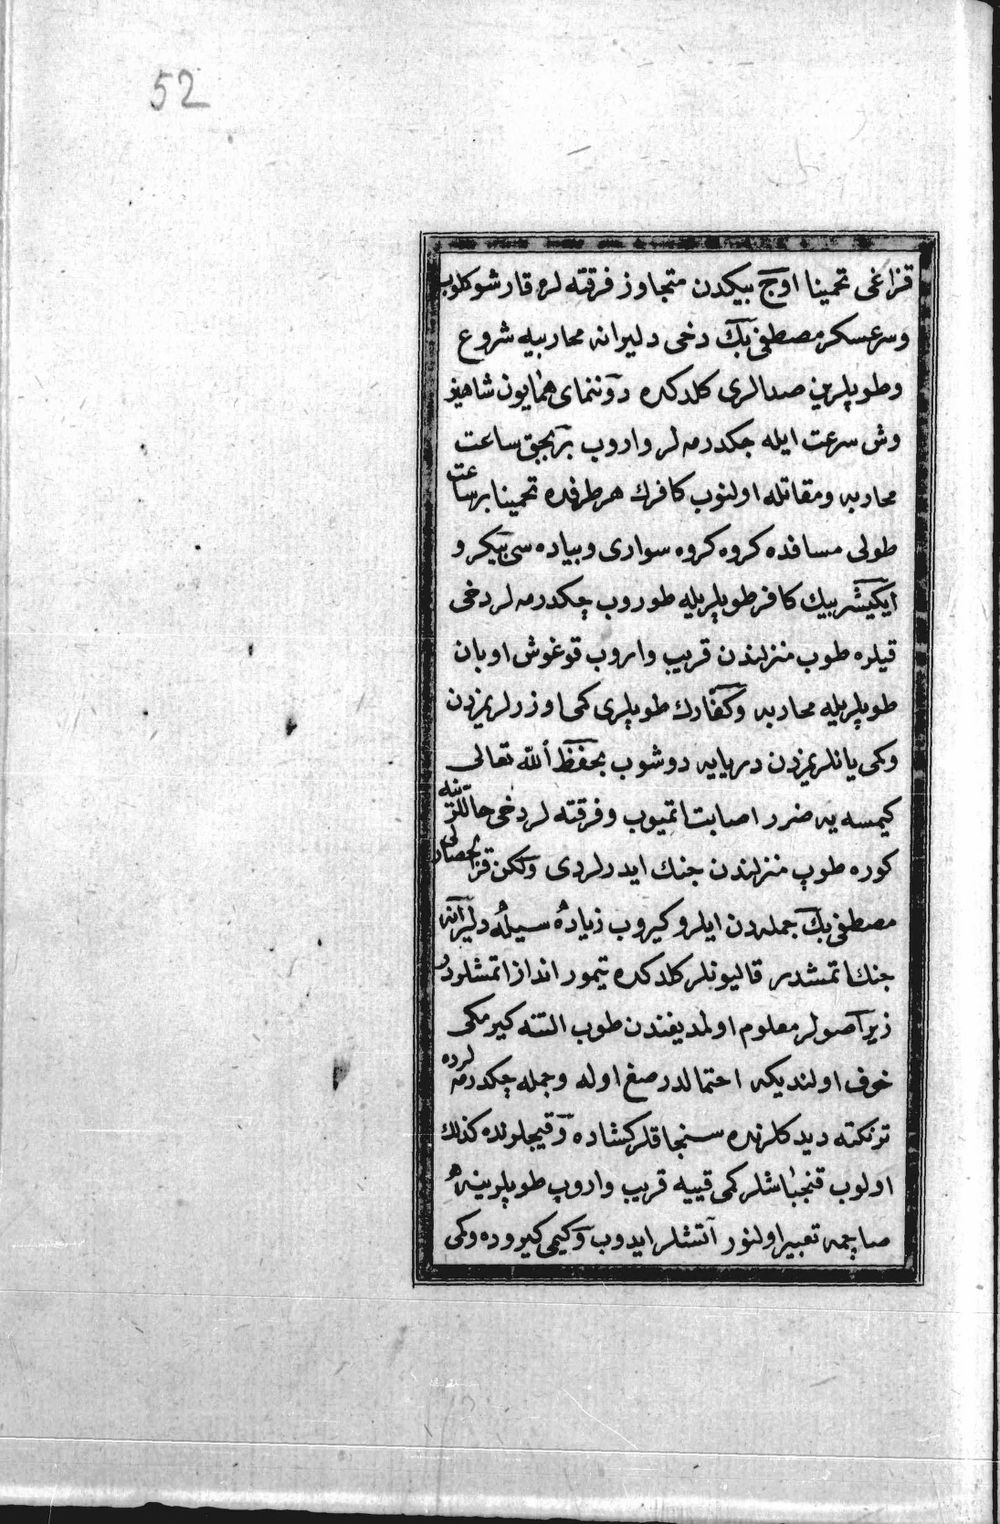 52
قزاغی تخمینا اوچ بیكدن متجاوز فرقته لره قارشو كلوب
وسرعسكر مصطفی بك دخی دلیرانه محاربیه شروع
وطوپلرین صدالری كلدكده دوننمای همایون شاهین
وش سرعت ایله چكدرمه لر واروب بر بچق ساعت
محاربه ومقاتله اولنوب كافرك هر طرفده تخمینا بر ساعت
طولی مسافده كروه كروه سواری وپیاده سی بیكر و
ایكیشر بیك كافر طوپلریله طوروب چكدرمه لر دخی
قیلره طوب منزلندن قریب واروب قوغوش اوبان
طوپلریله محاربه وكفارك طوپلری كمی اوزرلریمزدن
وكمی یانلریمزدن دریایه دوشوب بحفظ الله تعالی
كیمسه یه ضرر اصابت اتمیوب وفرقته لر دخی حاللرینه
كوره طوپ منزلندن جنك ایدرلردی ولكن قزلحصارلی
مصطفی بك جمله دن ایلرو كیروب زیاده سیله دلیرانه
جنك اتمشدر قالیونلر كلدكده تیمور انداز اتمشلردر
زیرا صولر معلوم اولمدیغندن طوب التنه كیرمكی
خوف اولندیكه احتمالدر صغ اوله وجمله چكدرمه لرده
ترنكته دیدكلرنده سنجاقلر كشاده وقیچلرنده كذلك
اولوب قنجه باشلر كمی قییه قریب واروپ طوپلرینه
صاچمه تعبیر اولنور آتشلر ایدوب وكیمی كیروده وكمی